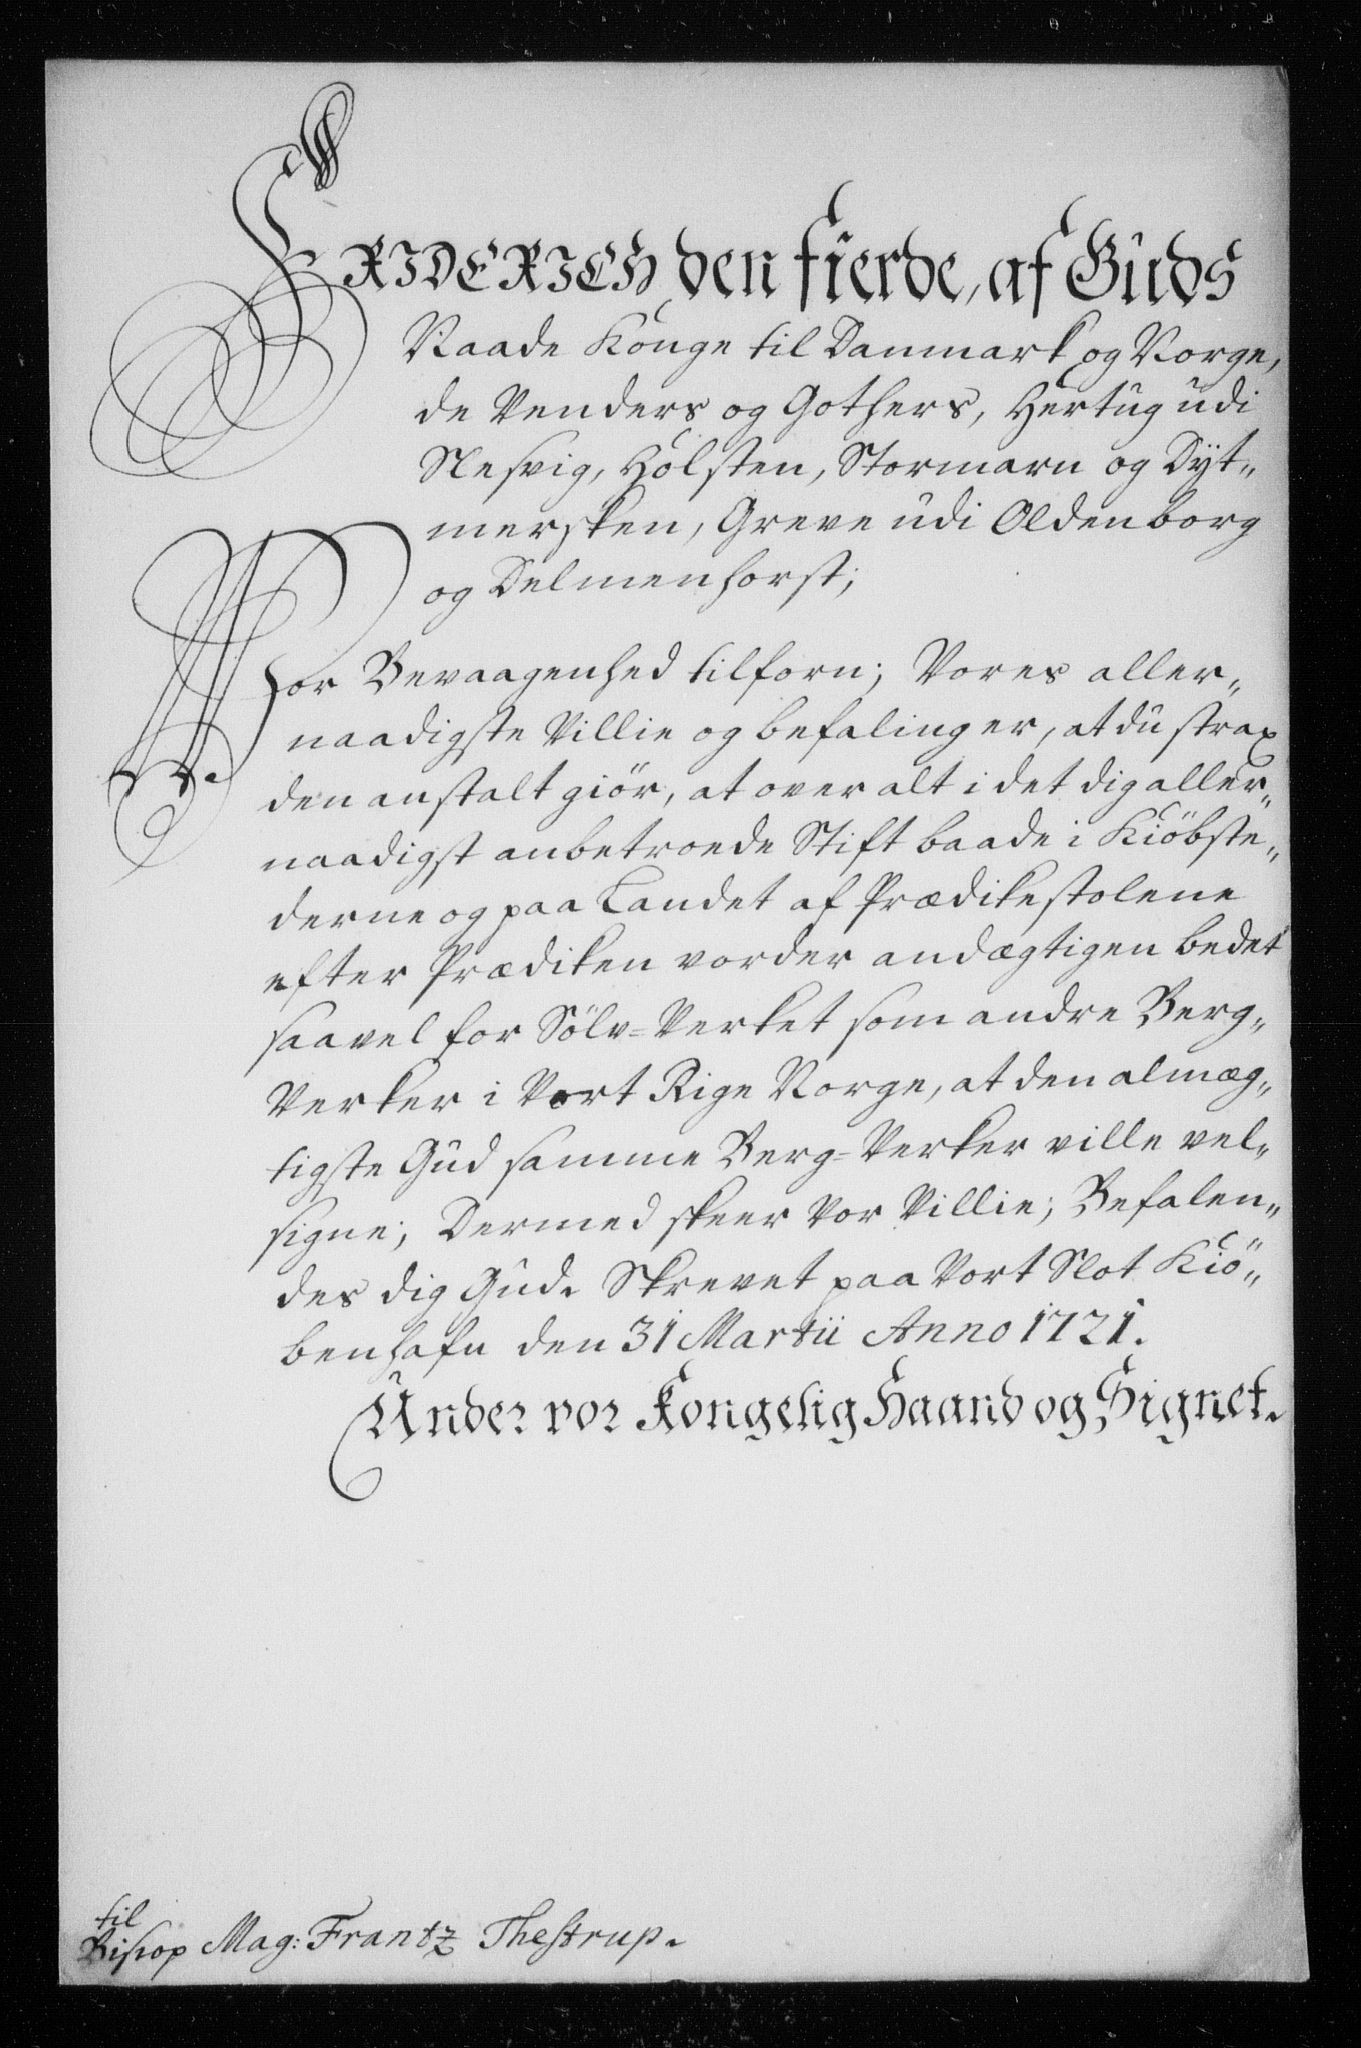 FRIDERICH den fierde, af Guds
Naade Konge til Danmark og Norge,
de Venders og Gothers, Hertug udi
Slesvig, Holsten, Stormarn og Dyt„
mersken, Greve udi Oldenborg
og Delmenhorst;
Vor Bevaagenhed tilforn; Vores aller„
naadigste Villie og befaling er, at du strax
den anstalt giör, at over alt i det dig aller„
naadigst anbetroede Stift baade i Kiöbste„
derne og paa Landet af Prædikestolene
efter Prædiken vorder andægtigen bedet
saavel for Sölv=Verket som andre Berg„
Verker i Vort Rige Norge, at den almæg„
tigste Gud samme Berg=Verker ville vel„
signe; Dermed skeer Vor Villie; Befalen„
des dig Gud. Skrevet paa Vort Slot Kiö„
benhafn den 31 Martii Anno 1721.
Under vor Kongelig Haand og Signet.
til
Bisop Mag: Frantz Thestrup.